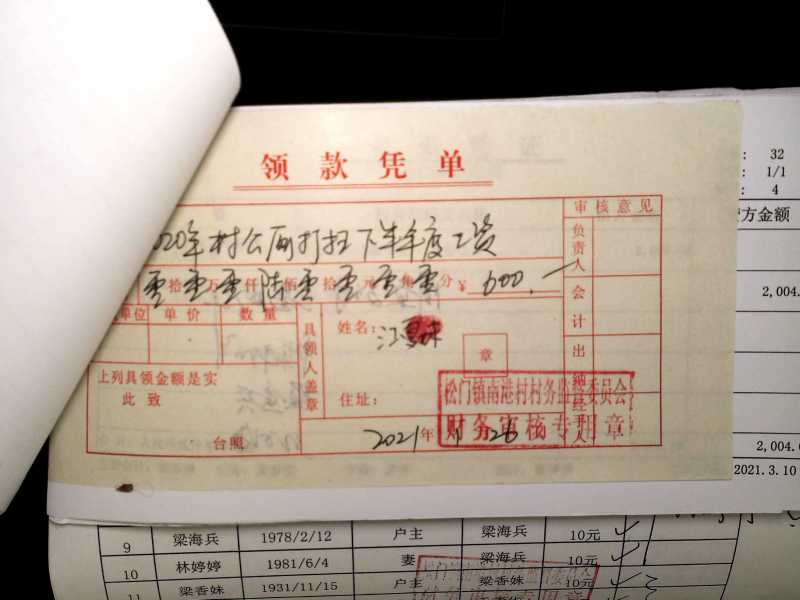 领款凭单
审核意见
020年村公厕打扫下半年度工资
负责人
零拾零万零仟陆佰零拾零元零角零分 ¥ 600.—
会计
单位 单价 数量
具领人盖章
姓名：江
章
出纳
经
人
上列具领金额是实
此致
住址：
台照
2021年1 26
松门镇南港村村务监督委员会
财务审核专用章
: 32
: 1/1
: 4
方金额
2,004.
2,004.
2021.3.10
9 梁海兵 1978/2/12 户主 梁海兵 10元
10 林婷婷 1981/6/4 妻 梁海兵 10元
11 梁香妹 1931/11/15 户主 梁香妹 10元